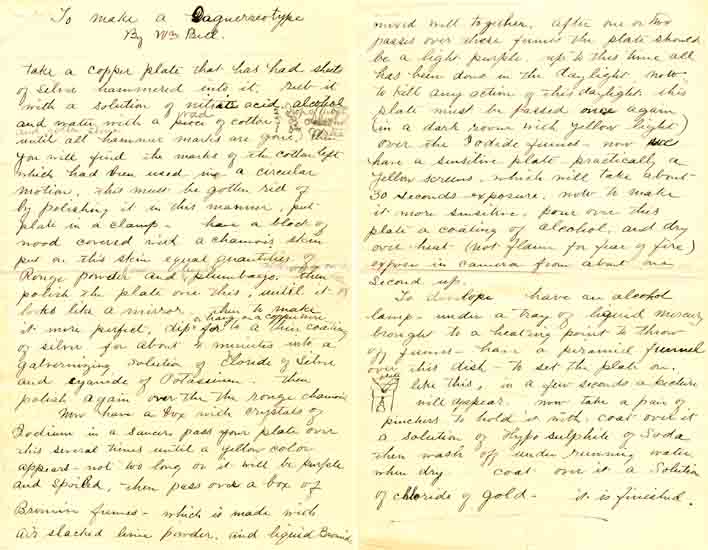 To make a Daguerreotype
By Wm Bell.
take a copper plate that has had sheets
of Silver hammered into it, rub it
with a solution of nitric acid, alcohol
and water with a piece of cotton
until all hammer marks are gone. Then
You will find the marks of the cotton left
which had been used in a circular
motion, this must be gotten rid of
by polishing it in this manner, put
plate in a clamp - have a block of
wood covered with a chamois skin
put on this skin equal quantities of
Rouge powder and plumbago. then
polish the plate one this, until it
looks like a mirror. then to make
hang on a copper wire
it more perfect, dip for to a thin coating
of silver for about 2 minutes into a
Galvernizing solution of Cloride of Silver
and cyanide of Potassium. then
polish again over the the rouge chamois
Now have a box with crystals of
Iodium in a saucer pass your plate over
this several times until a yellow color
appears - not too long or it will be purple
and spoiled, then pass over a box of
Bromin fumes - which is made with
air slacked lime powder, and liquid Bromid
mixed well together. after one or two
passes over these fumes the plate should
be a light purple. up to this time all
has been done in the daylight now
to kill any action of this daylight. this
plate must be passed once again
(in a dark room with yellow light)
over the Iodide fumes - now we
have a sinsitive plate practically a
yellow screen, which will take about
30 seconds exposure. now to make
it more sinsitive, pour over this
plate a coating of alcohol, and dry
over heat (not flame for fear of fire)
expose in camera from about one
Second up.
To divelope have an alcohol
lamp - under a tray of liquid mercury
brought to a heating point to throw
off fumes - have a piramid funnel
over this dish - to set the plate on.
like this, in a few seconds a picture
will appear. now take a pair of
pinchers to hold it with. coat over it
a solution of Hypo sulphite of Soda
then wash off under running water
when dry coat over it a Solution
of chloride of Gold - it is finished.